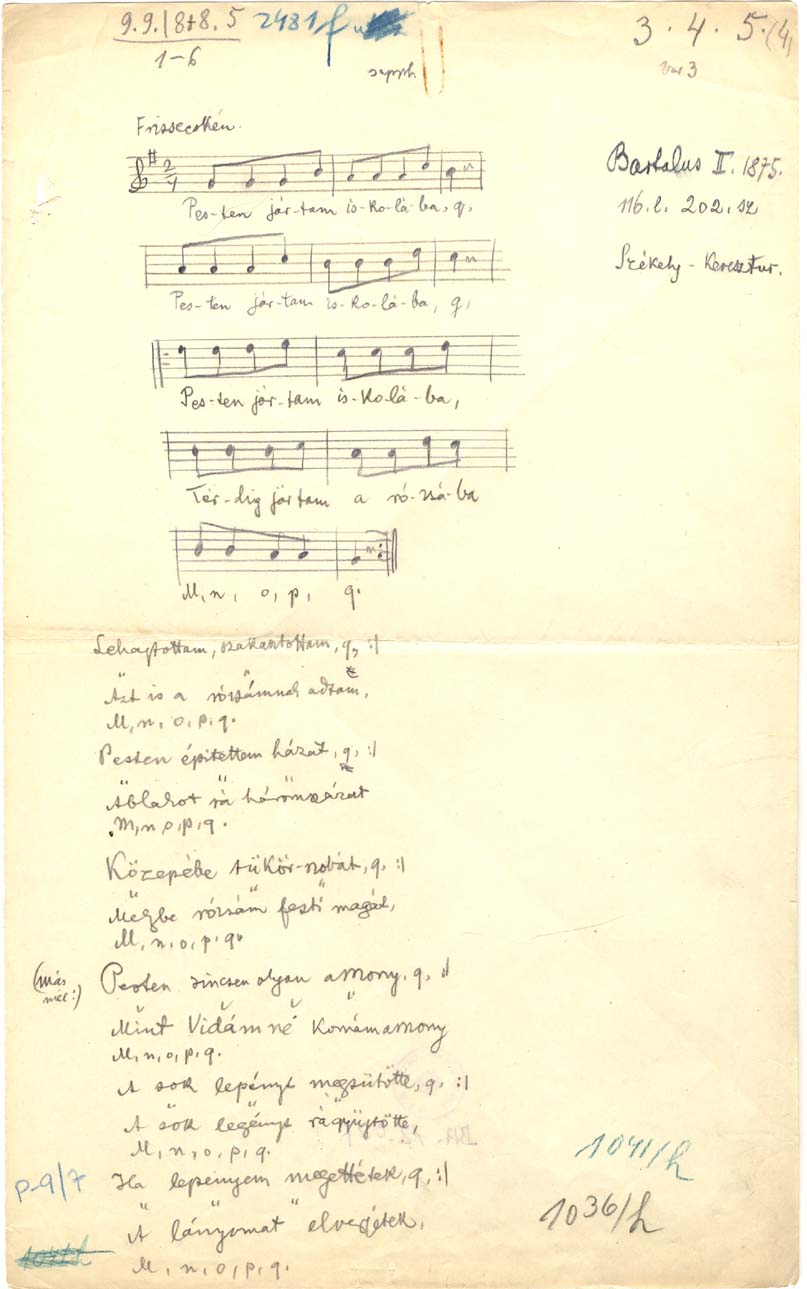 9.9.|8+8.5 2431/f
3 . 4 . 5 . (4)
1-6
var 3
Frissecskén.
Bartalus II. 1875.
116.l. 202. sz
Székely - Keresztur.
2/4
Pes-ten jár-tam is-ko-lá-ba, q,
Pes-ten jár-tam is-ko-lá-ba, q,
Pes-ten jár-tam is-ko-lá-ba,
Tér-dig jártam a ró-zsá-ba
M, n, o, p, q.
Lehajtottam, szakasztottam, q, :|
Azt is a rózsámnak adtam,
M, n, o, p, q.
Pesten építettem házat, q, :|
Ablakot rá háromszázat
M, n, o, p, q.
Közepébe tükör-szobát, q, :|
Melybe rózsám festi magát,
M, n, o, p, q.
(más mel:) Pesten sincsen olyan asszony, q, :|
Mint Vidámné komámasszony
M, n, o, p, q.
A sok lepényt megsütötte, q, :|
A sok legényt rágyüjtötte,
M, n, o, p, q.
1041/h
p-9/7 Ha lepényem megettétek, q, :|
1036/h
A lányomat elvegyétek,
M, n, o, p, q.